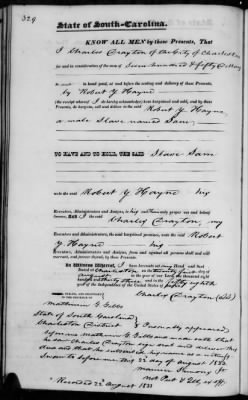 329
State of South-Carolina.
KNOW ALL MEN by these Presents, That
I Charles Crayton of the City of Charleston
for and in consideration of the sum of Seven hundred & fifty Dollars
to me in hand paid, at and before the sealing and delivery of these Presents,
by Robert Y Hayne
(the receipt whereof I do hereby acknowledge) have bargained and sold, and by these
Presents, do bargain, sell and deliver to the said Robert Y Hayne
a male Slave named Sam;
TO HAVE AND TO HOLD, THE SAID Slave Sam
unto the said Robert Y Hayne his
Executors, Administrators and Assigns, to his and their only proper use and behoof
forever. And I the said Charles Crayton, my
Executors, Administrators and Assigns, the said bargained premises, unto the said Robert
Y Hayne his
Executors, Administrators and Assigns, from and against all persons shall and will
warrant, and forever defend, by these Presents.
In Witness Whereof, I have hereunto set my Hand and Seal
Dated at Charleston on the twenty first day of
August in the year of our Lord one thousand eight
hundred and thirty three and in the fifty eighth
year of the Independence of the United States of America
SIGNED, SEALED, AND DELIVERED
IN THE PRESENCE OF
Charles Crayton (LS)
Matthew G Gibbs
State of South Carolina
Charleston District Personally appeared
before me Matthew G Gibbs and made oath that
he saw Charles Crayton sign seal and deliver this
deed and that he subscribed his name as a witness
Sworn to before me this 22 day of August 1833
Maurice Simons Jr
Not Pub & QU ex off.
Recorded 22 August 1833